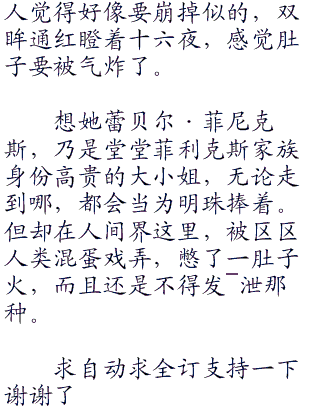 人觉得好像要崩掉似的，双
眸通红瞪着十六夜，感觉肚
子要被气炸了。
想她蕾贝尔·菲尼克
斯，乃是堂堂菲利克斯家族
身份高贵的大小姐，无论走
到哪，都会当为明珠捧着。
但却在人间界这里，被区区
人类混蛋戏弄，憋了一肚子
火，而且还是不得发¯泄那
种。
求自动求全订支持一下
谢谢了